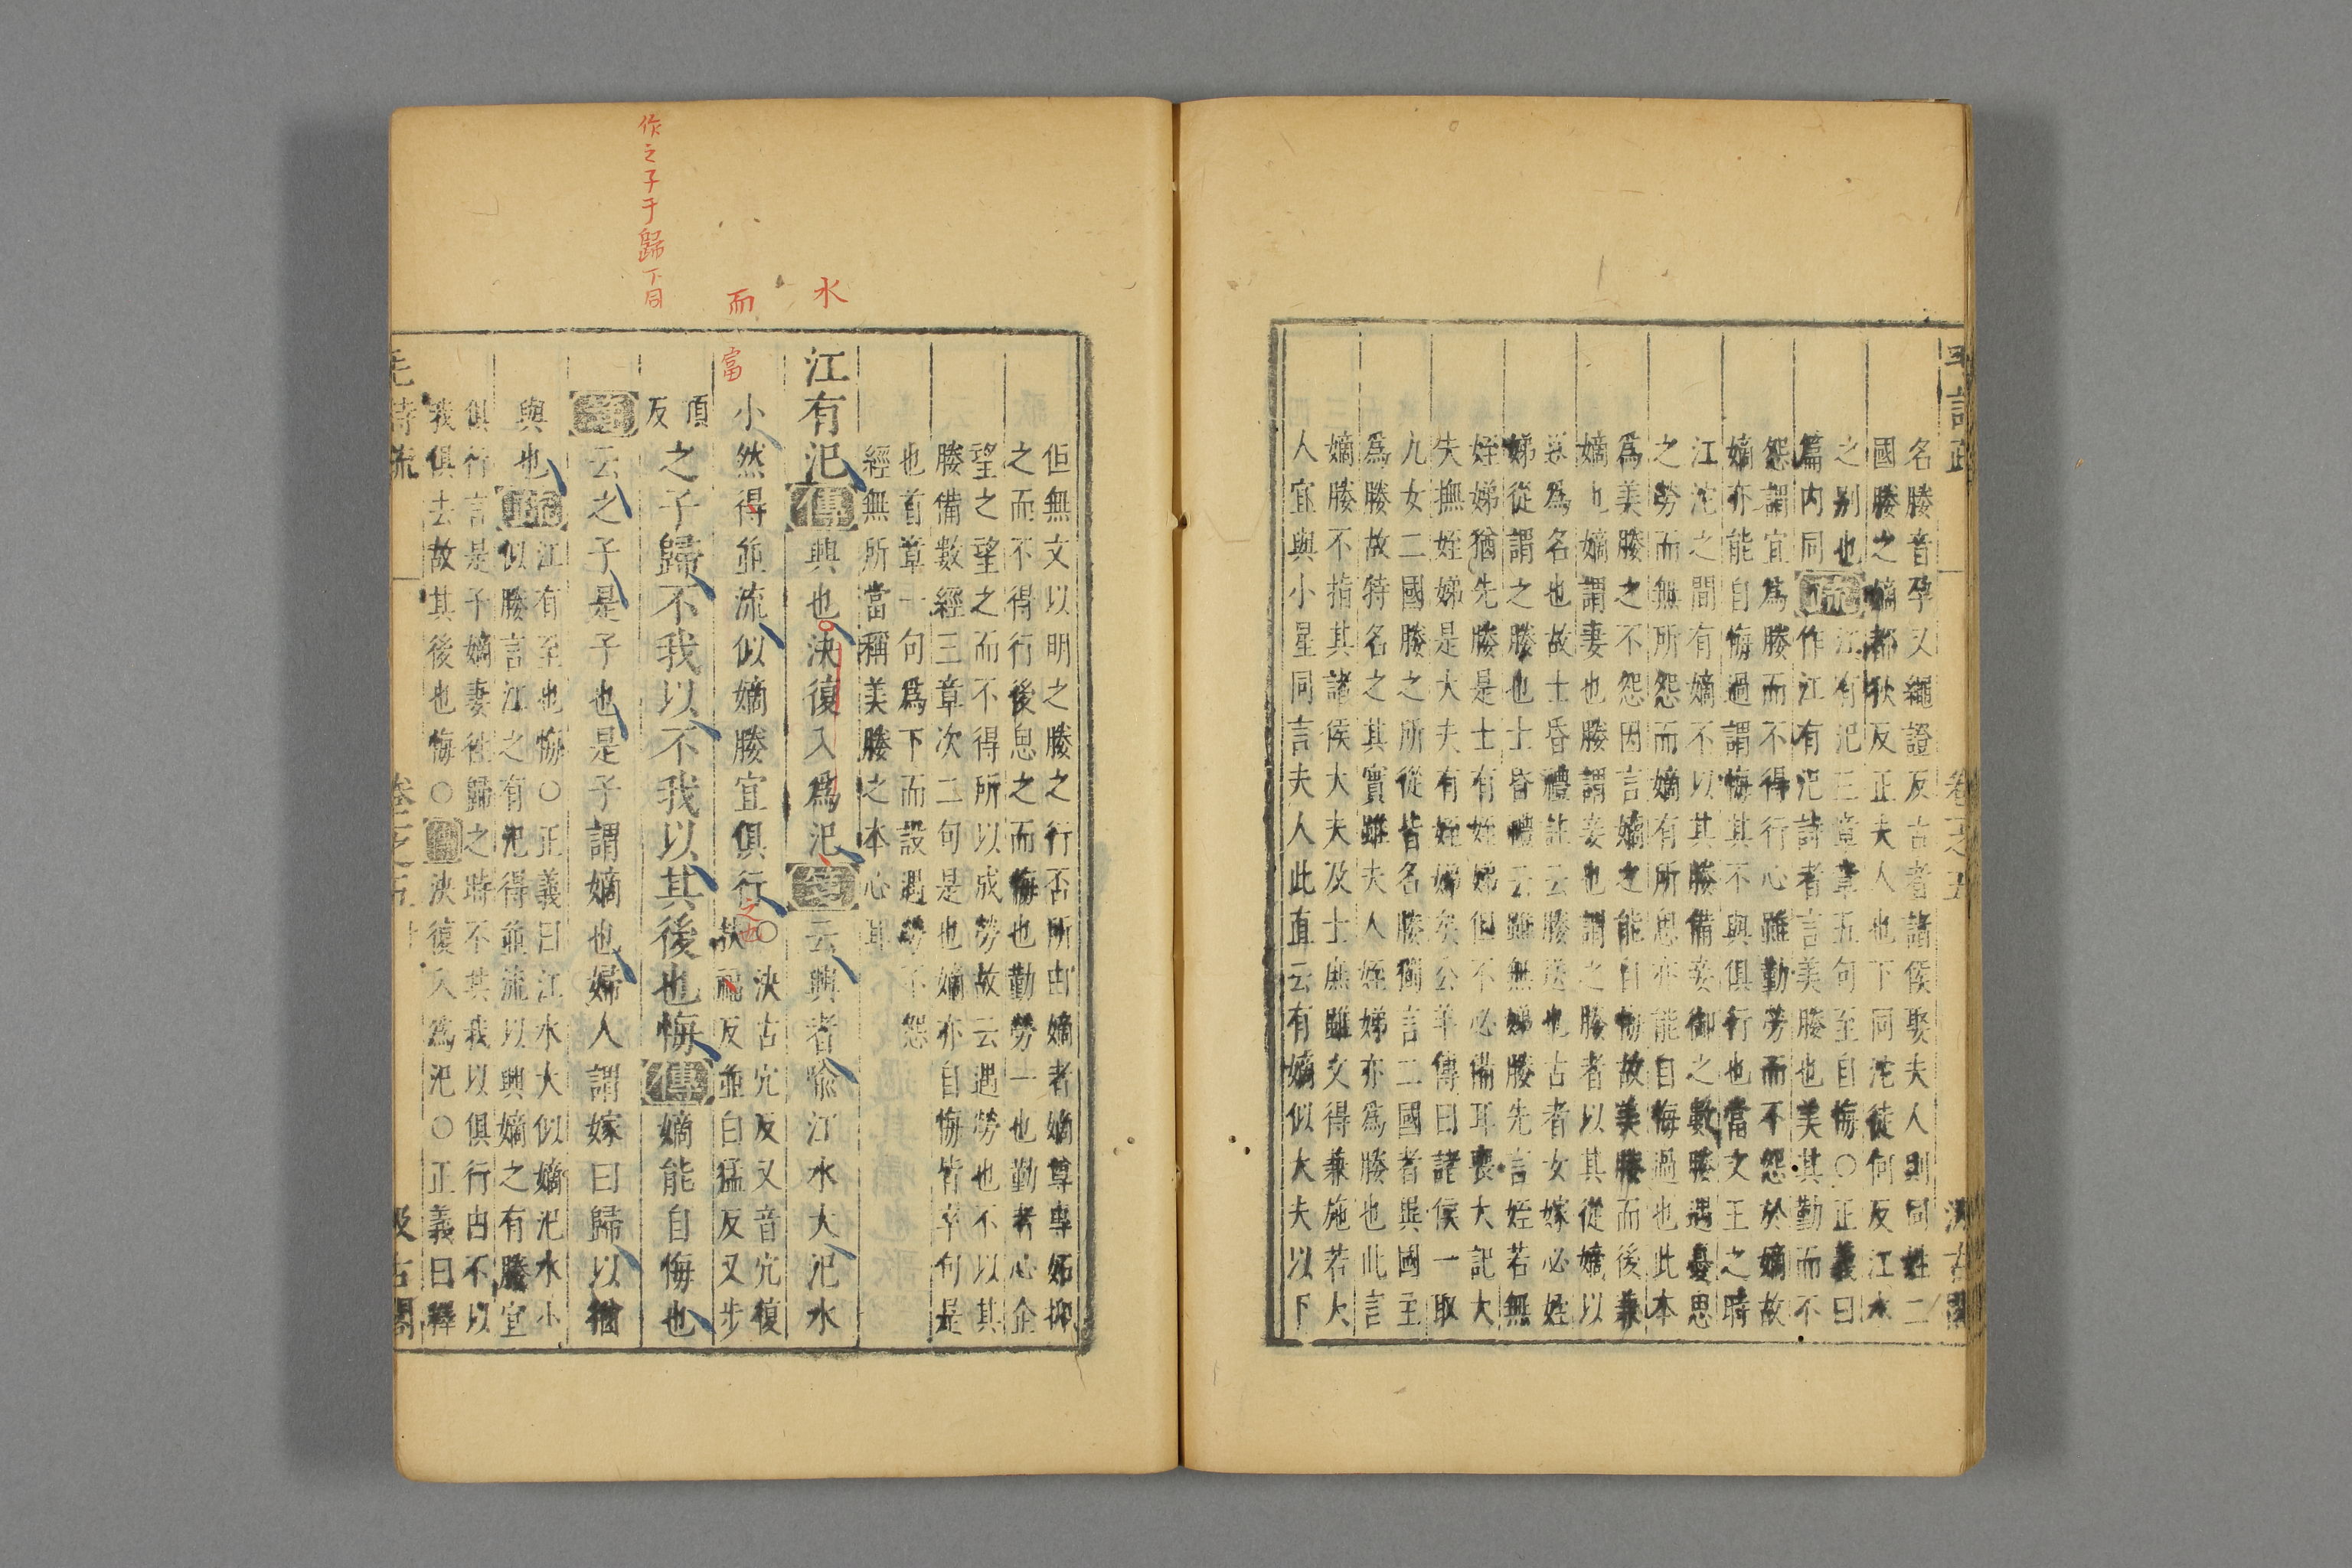 名媵音孕又繩證反古者諸侯娶夫人則同姓二
國媵之嫡都狄反正夫人也下同沱徒何反江水
之别也 江有汜三章章五句至自悔○正義曰
篇内同疏作江有汜詩者言美媵也美其勤而不
怨謂宜爲媵而不得行心雖勤勞而不怨於嫡故
嫡亦能自悔過謂悔其不與俱行也當文王之時
江沱之間有嫡不以其媵備妾御之數媵遇憂思
之勞而無所怨而嫡有所思亦能自悔過也此本
爲美媵之不怨因言嫡之能自悔故美媵而後兼
嫡也嫡謂妻也媵謂妾也謂之媵者以其從嫡以
爲名也故士昏禮註云媵送也古者女嫁必姪
娣從謂之媵也士昏禮云雖無娣媵先言姪若無
姪娣猶先媵是士有姪娣但不必備耳喪大記大
夫撫姪娣是大夫有姪娣矣公羊傳曰諸侯一取
九女二國媵之所從皆名媵獨言二國者異國主
爲媵故特名之其實雖夫人姪娣亦爲媵也此言
嫡媵不指其諸侯大夫及士庶雖文得兼施若大
人宜與小星同言夫人此直云有嫡似大夫以下
但無文以明之媵之行否所由嫡者嫡尊專妬抑
之而不得行後思之而悔也勤勞一也勤者心企
望之望之而不得所以成勞故云遇勞也不以其
媵備數經三章次二句是也嫡亦自悔皆卒句是
也首章一句爲下而設遇勞不怨
經無所當稱美媵之本心耳
江有汜傳興也決復入爲汜箋云興者喻江水大汜水
小然得並流似嫡媵宜俱行○決古穴反又音穴復
扶福反並白猛反又步
頂
反之子歸不我以不我以其後也悔傳嫡能自悔也
箋云之子是子也是子謂嫡也婦人謂嫁曰歸以猶
與也疏江有至也悔○正義曰江水大似嫡汜水小
似媵言江之有汜得並流以興嫡之有媵宜
俱行言是子嫡妻往歸之時不共我以俱行由不以
我俱去故其後也悔○傳決復入爲汜○正義曰釋
汲古閣
水
而
富
作之子于歸下同